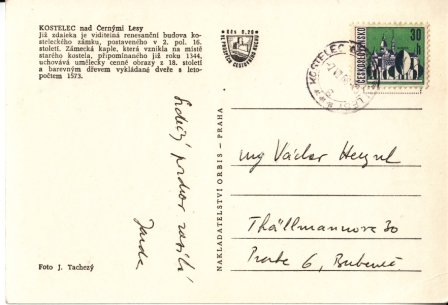 KOSTELEC nad Černými Lesy
Již zdaleka je viditelná renesanční budova ko-
steleckého zámku, postaveného v 2. pol. 16.
století. Zámecká kaple, která vznikla na místě
starého kostela, připomínaného již roku 1344,
uchovává umělecky cenné obrazy z 18. století
a barevným dřevem vykládané dveře s leto-
počtem 1573.
Kčs 0.20
30 h
ČESKOSLOVENSKO
KOSTELEC
NAKLADATELSTVÍ ORBIS – PRAHA
Srdečný pozdrav zasílá
Jarda
ing Václav
Thällmannova 30
Praha 6, Bubeneč
Foto J. Tachezý